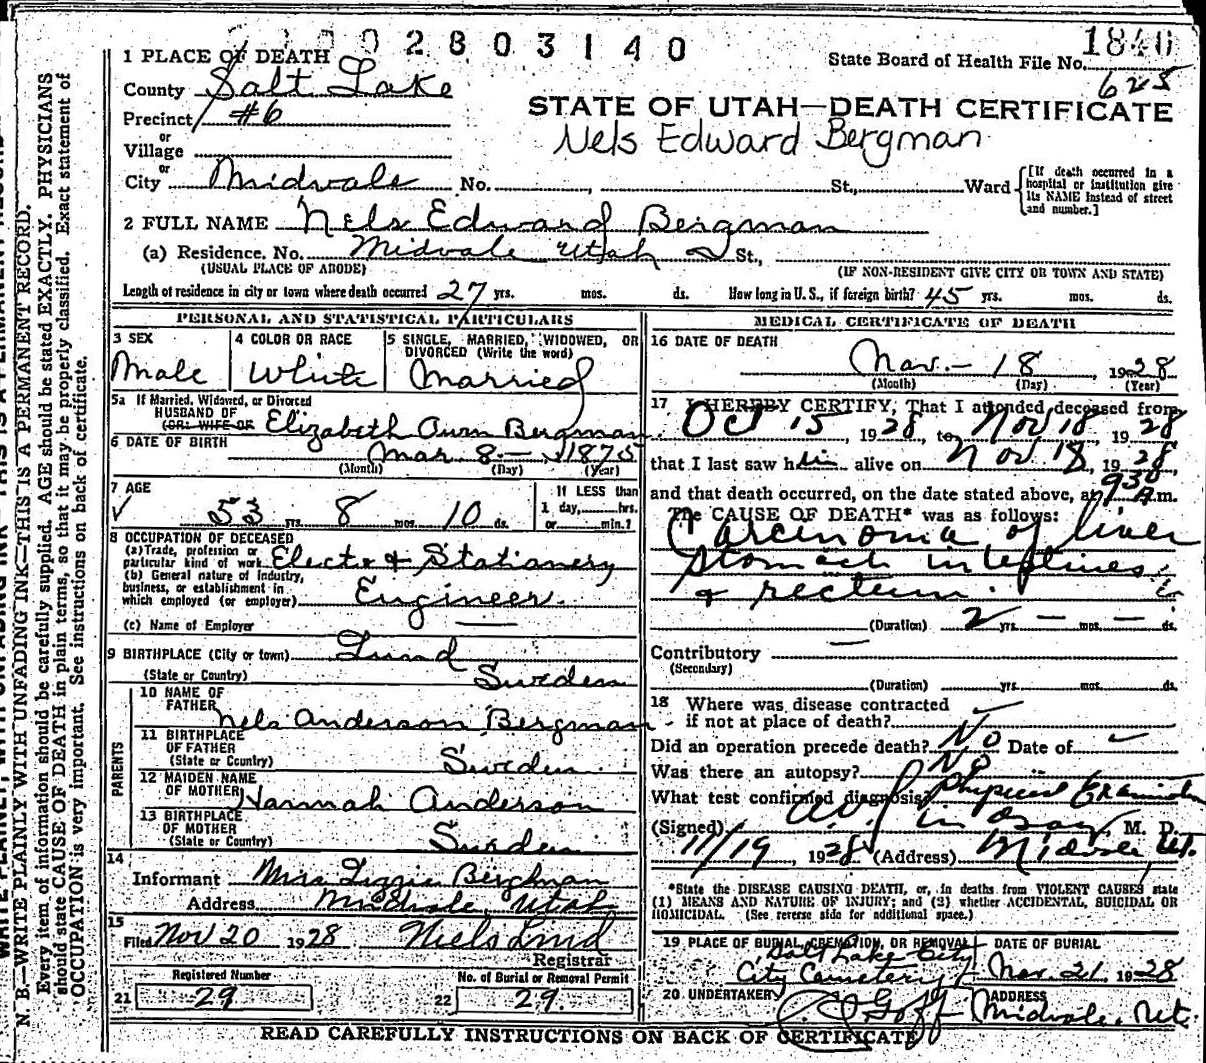 2803140
1840
1 PLACE OF DEATH
State Board of Health File No. 625
County Salt Lake
STATE OF UTAH—DEATH CERTIFICATE
Precinct #6
Nels Edward Bergman
or
Village
or
City Midvale No. St., Ward
[If death occurred in a hospital or institution give its NAME instead of street and number.]
2 FULL NAME Nels Edward Bergman
(a) Residence. No. Midvale Utah St.,
(USUAL PLACE OF ABODE) (IF NON-RESIDENT GIVE CITY OR TOWN AND STATE)
Length of residence in city or town where death occurred 27 yrs. mos. ds. How long in U. S., if foreign birth? 45 yrs. mos. ds.
PERSONAL AND STATISTICAL PARTICULARS
3 SEX
Male
4 COLOR OR RACE
White
5 SINGLE, MARRIED, WIDOWED, OR
DIVORCED (Write the word)
Married
5a If Married, Widowed, or Divorced
HUSBAND OF
(OR) WIFE OF Elizabeth Bergman
6 DATE OF BIRTH Mar 8 — 1875
(Month) (Day) (Year)
7 AGE
53 yrs 8 mos. 10 ds.
If LESS than
1 day, hrs.
or min.?
8 OCCUPATION OF DECEASED
(a) Trade, profession or
particular kind of work Electr & Stationery
(b) General nature of Industry,
business, or establishment in
which employed (or employer) Engineer.
(c) Name of Employer —
9 BIRTHPLACE (City or town) Lund
(State or Country) Sweden
PARENTS
10 NAME OF
FATHER Nels Anderson Bergman
11 BIRTHPLACE
OF FATHER
(State or Country) Sweden
12 MAIDEN NAME
OF MOTHER Hannah Anderson
13 BIRTHPLACE
OF MOTHER
(State or Country) Sweden
14
Informant Mrs Lizzie Bergman
Address Midvale, Utah
15
Filed Nov 20 1928 Niels Lind
Registrar
Registered Number
21 29
No. of Burial or Removal Permit
22 29
MEDICAL CERTIFICATE OF DEATH
16 DATE OF DEATH
Nov. – 18 1928
(Month) (Day) (Year)
17 I HEREBY CERTIFY, That I attended deceased from
Oct 15, 1928, to Nov 18, 1928
that I last saw him alive on Nov 18, 1928,
and that death occurred, on the date stated above, at 930 A.m.
The CAUSE OF DEATH* was as follows:
Carcinoma of liver
stomach intestines
& rectum.
(Duration) 2 yrs. — mos. — ds.
Contributory —
(Secondary)
(Duration) yrs. mos. ds.
18 Where was disease contracted
if not at place of death?
Did an operation precede death? No Date of
Was there an autopsy? No
What test confirmed diagnosis? Physical
(Signed) M. D.
11/19, 1928 (Address) Midvale, Ut.
*State the DISEASE CAUSING DEATH, or, in deaths from VIOLENT CAUSES, state
(1) MEANS AND NATURE OF INJURY; and (2) whether ACCIDENTAL, SUICIDAL OR
HOMICIDAL. (See reverse side for additional space.)
19 PLACE OF BURIAL, CREMATION, OR REMOVAL
Salt Lake City
City Cemetery
DATE OF BURIAL
Nov. 21, 1928
20 UNDERTAKER Goff
ADDRESS
Midvale, Ut.
READ CAREFULLY INSTRUCTIONS ON BACK OF CERTIFICATE
N. B.—WRITE PLAINLY WITH UNFADING INK—THIS IS A PERMANENT RECORD.
Every item of information should be carefully supplied. AGE should be stated EXACTLY. PHYSICIANS
should state CAUSE OF DEATH in plain terms, so that it may be properly classified. Exact statement of
OCCUPATION is very important. See instructions on back of certificate.